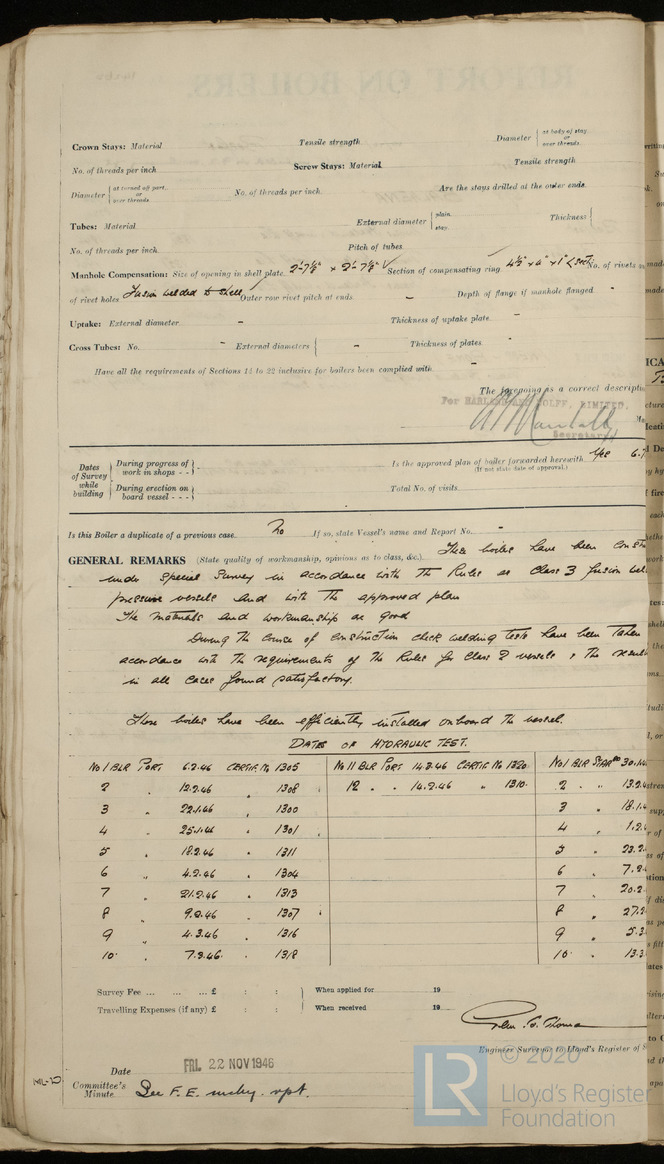 Crown Stays: Material Tensile strength Diameter at body of stay. or over threads.
No. of threads per inch Screw Stays: Material Tensile strength
Diameter at turned off part. or over threads. No. of threads per inch Are the stays drilled at the outer ends.
Tubes: Material External diameter plain. stay. Thickness
No. of threads per inch. Pitch of tubes.
Manhole Compensation: Size of opening in shell plate. 2'-7½" × 2'-7½" Section of compensating ring No. of rivets
of rivet holes Fusion welded to shell Outer row rivet pitch at ends - Depth of flange if manhole flanged -
Uptake: External diameter - Thickness of uptake plate -
Cross Tubes: No. - External diameters - Thickness of plates -
Have all the requirements of Sections 14 to 22 inclusive for boilers been complied with -
The foregoing is a correct descripti
For HARLAND AND WOLFF, LIMITED.
Secretary
Dates of Survey while building
During progress of work in shops - -
During erection on board vessel - - -
Is the approved plan of boiler forwarded herewith Yes
(If not state date of approval.)
Total No. of visits
Is this Boiler a duplicate of a previous case No If so, state Vessel's name and Report No. -
GENERAL REMARKS (State quality of workmanship, opinions as to class, &c.) These boilers have been const
under Special Survey in accordance with the Rules as Class 3 fusion wel
pressure vessels and with the approved plan
The materials and workmanship are good
During the course of construction check welding tests have been taken
accordance with the requirements of the Rules for Class 2 vessels & the result
in all cases found satisfactory.
These boilers have been efficiently installed onboard the vessel.
DATES OF HYDRAULIC TEST.
No 1 BLR PORT 6.2.46 CERTIF. No 1305 No 11 BLR PORT 14.3.46 CERTIF No 1320 No 1 BLR STARBD 30.1.4
2 " 12.2.46 " 1308 12 " " 14.2.46 " 1310 2 " " 13.2.4
3 " 22.1.46 " 1300 3 " 18.1.4
4 " 25.1.46 " 1301 4 " 1.2.
5 " 18.2.46 " 1311 5 " 23.2.
6 " 4.2.46 " 1304 6 " 7.2
7 " 21.2.46 " 1313 7 " 20.2
8 " 9.2.46 " 1307 8 " 27.2
9 " 4.3.46 " 1316 9 " 5.3
10 " 7.3.46 " 1318 10 " 13.3
Survey Fee ... ... ... £ : : When applied for 19
Travelling Expenses (if any) £ : : When received 19
Engineer Surveyor to Lloyd's Register of S
Date FRI. 22 NOV 1946
Committee's Minute See F. E. mchy. rpt.
© 2020
LR Lloyd's Register
Foundation